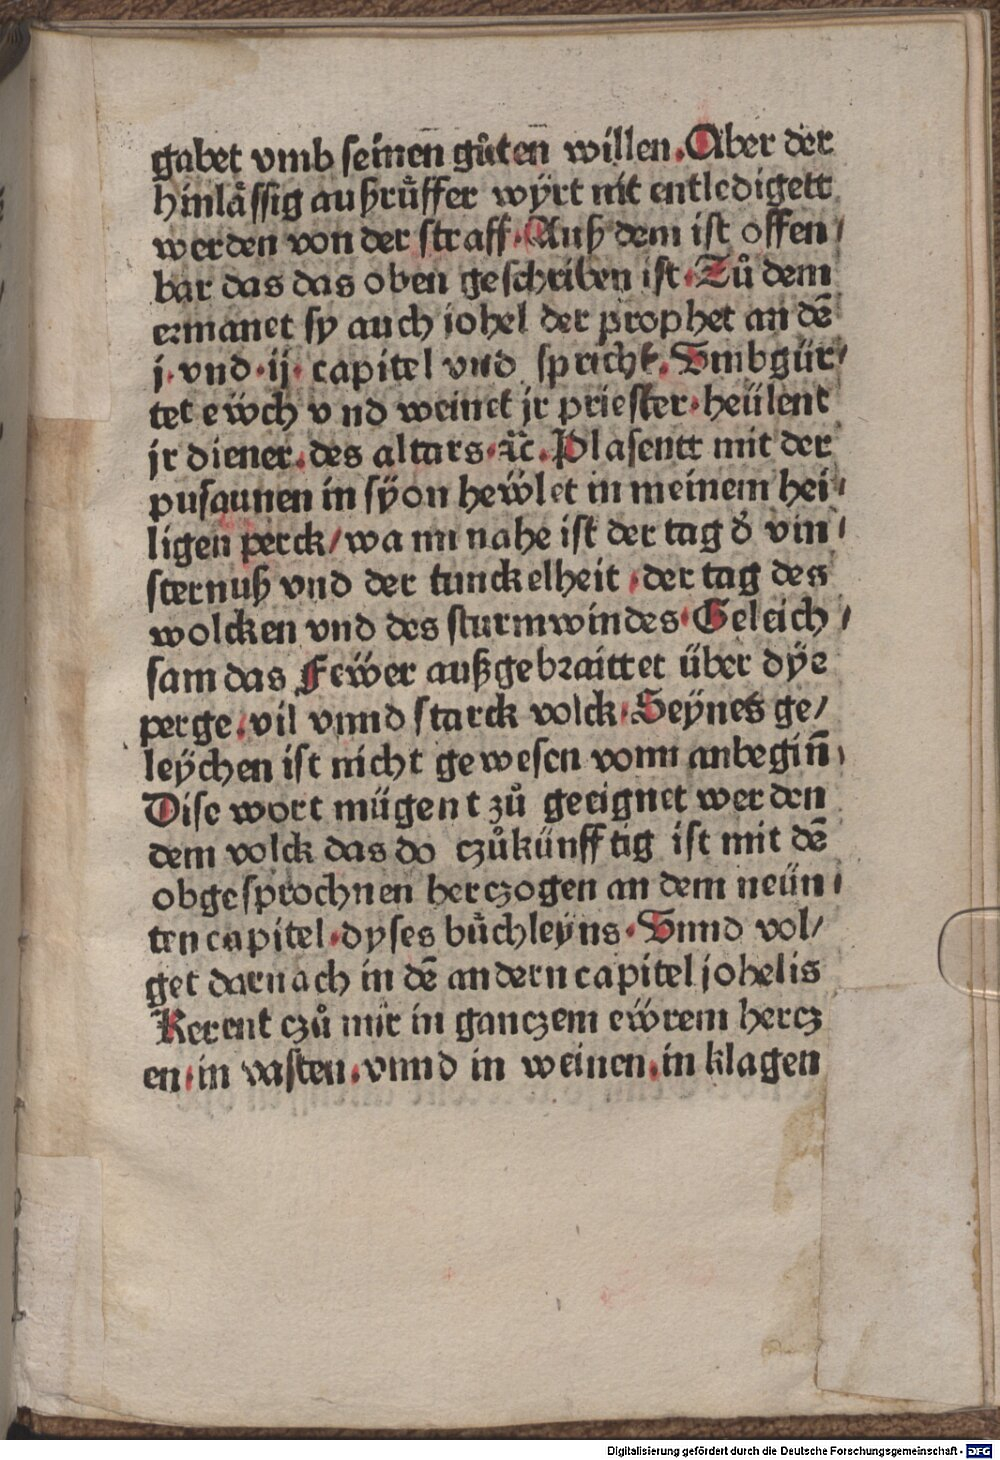 gabet vmb seinen̄ gůten̄ willen. Aber der
hinlåssig außrůffer wÿrt nit entledigett
werden von der straff. Auß dem ist offen/
bar das das oben geschriben ist. Zů dem
ermanet sy auch iohel der prophet an dē
j. vnd .ij. capitel vnd spricht. Vmbgür/
tet eẅch vnd weinet jr priester. heülent
jr diener. des altars. ⁊c̄. Plasentt mit der
pusaunen in sÿon heẅlet in meinem hei/
ligen perck/ wann nahe ist der tag d̕ vin/
sternuß vnd der tunckelheit .der tag des
wolcken vnd des sturmwindes. Geleich/
sam das Feẅer außgebraittet über dÿe
perge. vil vnnd starck volck. Seÿnes ge/
leÿchen ist nicht gewesen vonn anbegiñ/
Dise wort mügent zů geeignet werden
dem volck das do czůkünfftig ist mit dē
obgesprochnen herczogen an dem neün/
ten capitel. dyses bůchleÿns. Vnnd vol/
get darnach in dē andern capitel johelis
Kerent czů mir in ganczem eẅrem hercz
en. in vasten. vnnd in weinen. in klagen
Digitalisierung gefördert durch die Deutsche Forschungsgemeinschaft - DFG